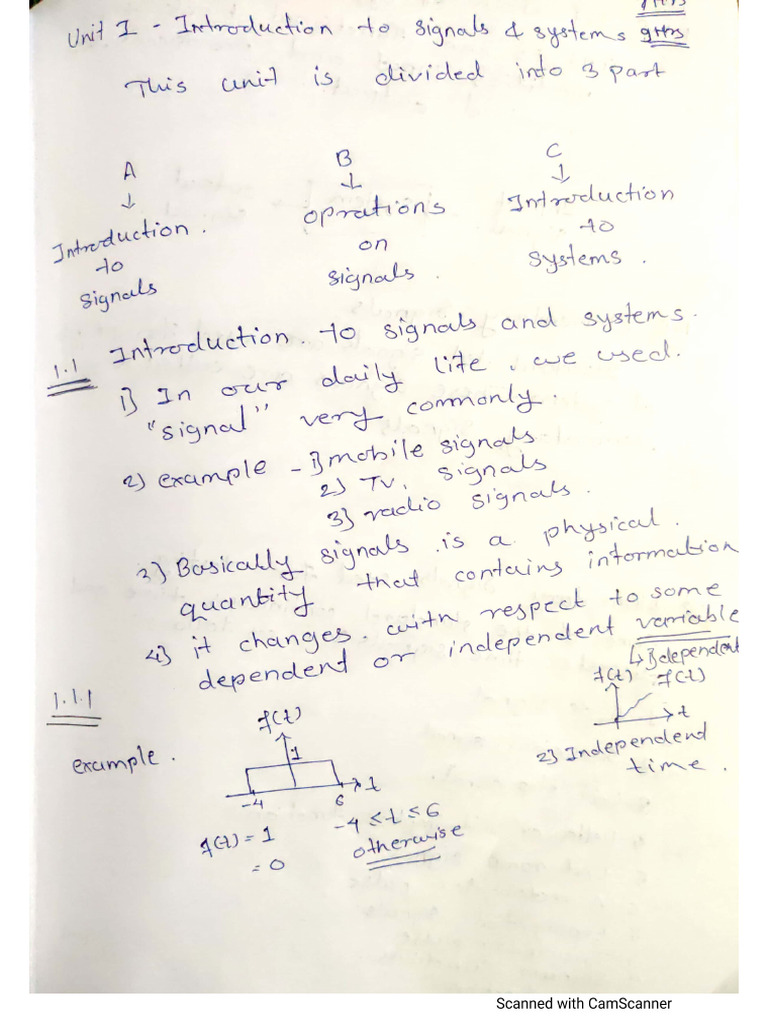 Unit I - Introduction to signals & systems 9Hrs
This unit is divided into 3 part
A B C
↓ ↓ ↓
Introduction. Oprations Introduction
to on to
signals signals. systems.
1.1 Introduction. to signals and systems.
1) In our daily life, we used.
"signal" very commonly.
2) example - 1) mobile signals
2) TV, signals
3) radio signals.
3) Basically signals is a physical.
quantity that contains information
4) it changes. with respect to some
dependent or independent variable
↳ 1) dependent
1.1.1
f(t) f(t)
t
2) Independend
time.
example.
f(t)
1
-4 6 t
f(t) = 1 -4 ≤ t ≤ 6
= 0 otherwise
Scanned with CamScanner